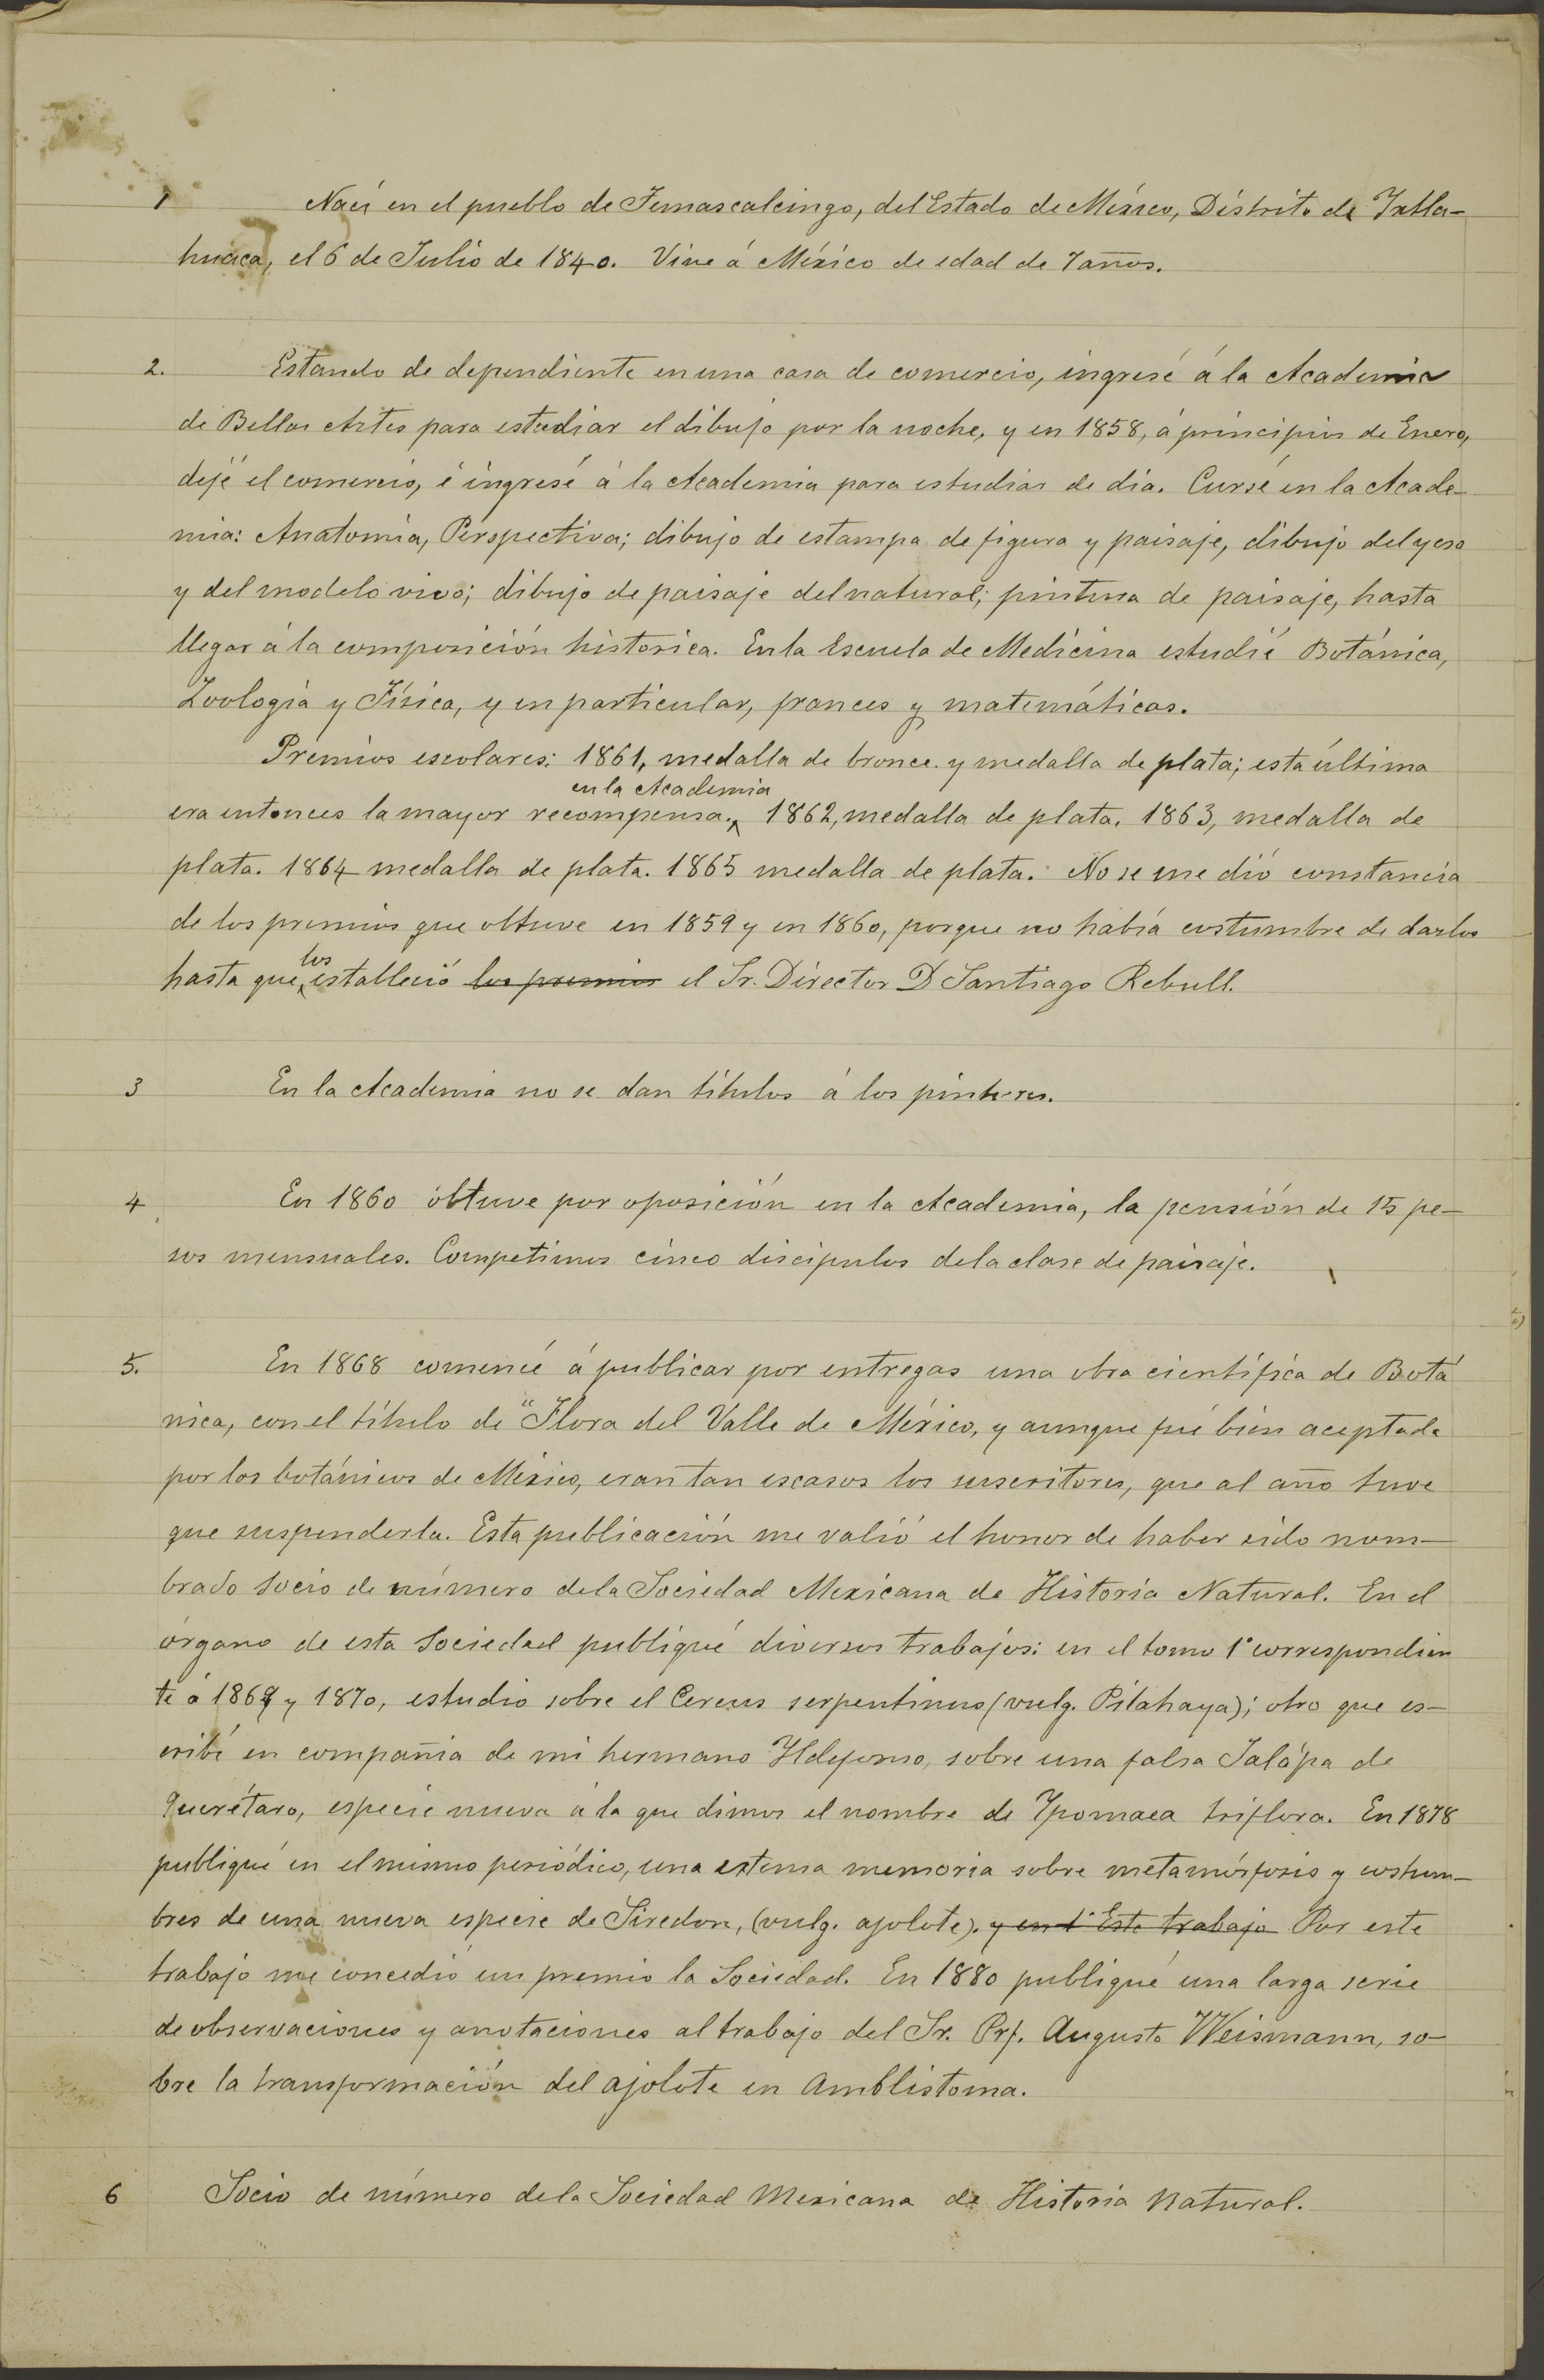 1 Nací en el pueblo de Temascalcingo, del Estado de México, Distrito de Ixtla-
huaca, el 6 de Julio de 1840. Vine á México de edad de 7 años.
2. Estando de dependiente en una casa de comercio, ingresé á la Academia
de Bellas Artes para estudiar el dibujo por la noche, y en 1858, á principios de Enero,
dejé el comercio, é ingresé á la Academia para estudiar de dia. Cursé en la Acade-
mia: Anatomia, Perspectiva; dibujo de estampa de figura y paisaje, dibujo del yeso
y del modelo vivo; dibujo de paisaje del natural; pintura de paisaje, hasta
llegar á la composición historica. En la Escuela de Medicina estudié Botánica,
Zoologia y Física, y en particular, frances y matemáticas.
Premios escolares: 1861, medalla de bronce y medalla de plata; esta última
en la Academia
era entonces la mayor recompensa. 1862, medalla de plata. 1863, medalla de
plata. 1864 medalla de plata. 1865 medalla de plata. No se me dió constancia
de los premios que obtuve en 1859 y en 1860, porque no habia costumbre de darlos
los
hasta que estableció los premios el Sr. Director D Santiago Rebull.
3 En la Academia no se dan títulos á los pintores.
4 En 1860 obtuve por oposición en la Academia, la pensión de 15 pe-
sos mensuales. Competimos cinco discipulos de la clase de paisaje.
5. En 1868 comencé á publicar por entregas una obra científica de Botá
nica, con el título de "Flora del Valle de México, y aunque fué bien aceptada
por los botánicos de México, eran tan escasos los suscritores, que al año tuve
que suspenderla. Esta publicación me valió el honor de haber sido nom-
brado socio de número de la Sociedad Mexicana de Historia Natural. En el
órgano de esta Sociedad publiqué diversos trabajos: en el tomo 1º correspondien
te á 1869 y 1870, estudio sobre el Cereus serpentinus (vulg. Pitahaya); otro que es-
cribí en compañia de mi hermano Ildefonso, sobre una falsa Jalápa de
Querétaro, especie nueva á la que dimos el nombre de Ipomaea triflora. En 1878
publiqué en el mismo periódico, una extensa memoria sobre metamórfosis y costum-
bres de una nueva especie de Siredon, (vulg. ajolote). y en 1º Este trabajo Por este
trabajo me concedió un premio la Sociedad. En 1880 publiqué una larga serie
de observaciones y anotaciones al trabajo del Sr. Prf. Augusto Weismann, so-
bre la transformación del ajolote en Amblistoma.
6 Socio de número de la Sociedad Mexicana de Historia Natural.